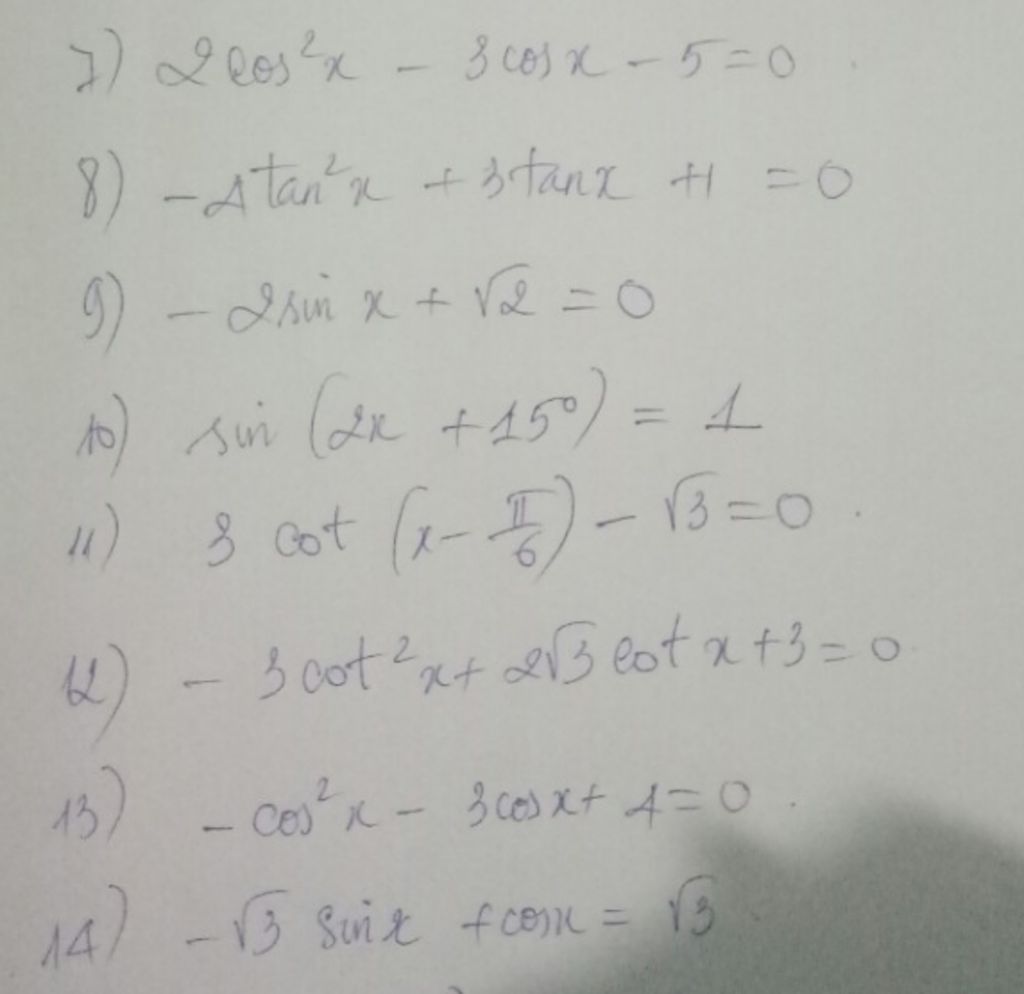 7) 2cos²x - 3cosx - 5 = 0
8) -4tan²x + 3tanx + 1 = 0
9) -2sin x + √2 = 0
10) sin (2x + 15°) = 1
11) 3 cot (x - π/6) - √3 = 0
12) - 3cot²x + 2√3 cot x + 3 = 0
13) - cos²x - 3cosx + 4 = 0
14) -√3 sinx + cosx = √3